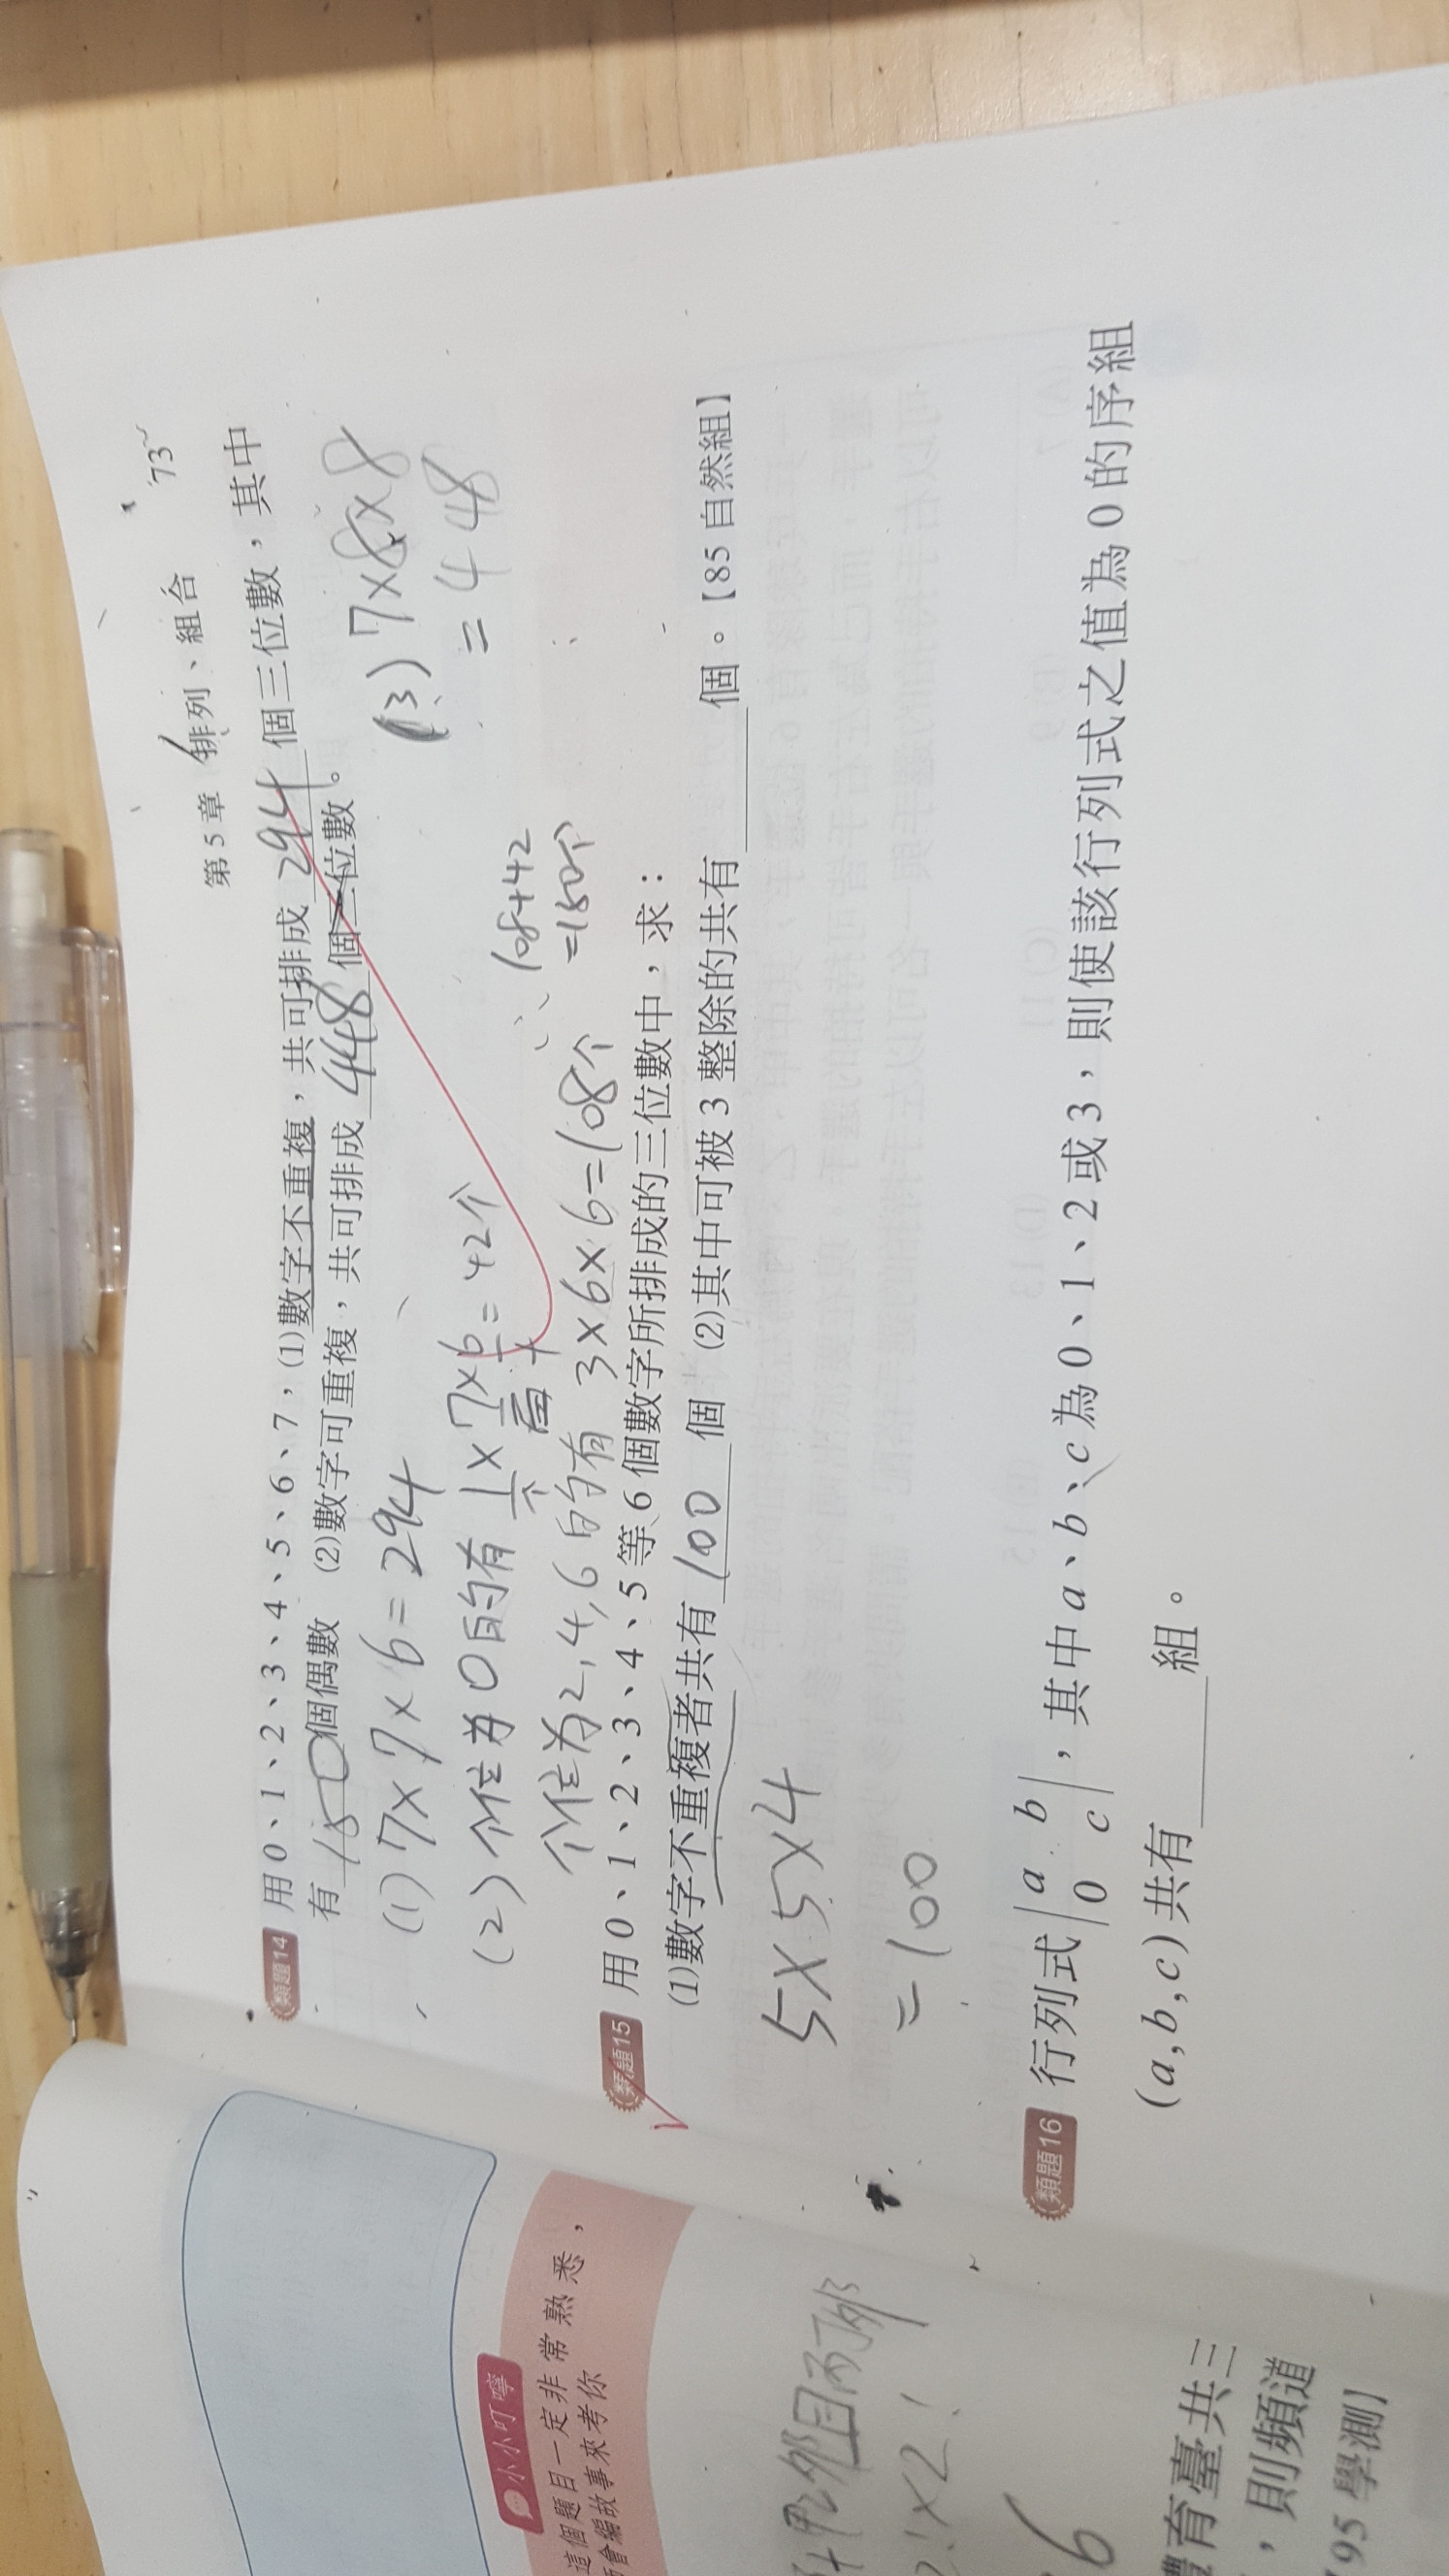 73
第5章 排列、組合
類題14 用0、1、2、3、4、5、6、7,(1)數字不重複,共可排成 294 個三位數,其中
有 150 個偶數 (2)數字可重複,共可排成 448 個三位數。
(1) 7×7×6=294
(3) 7×8×8
=448
(2) 个位为0的有 1×7×6=42个
个 百 十
个位为2,4,6的有 3×6×6=108个
108+42
=150个
類題15 用0、1、2、3、4、5等6個數字所排成的三位數中,求:
(1)數字不重複者共有 100 個 (2)其中可被3整除的共有 個。【85自然組】
5×5×4
=100
類題16 行列式 |a b
0 c|,其中a、b、c為0、1、2或3,則使該行列式之值為0的序組
(a,b,c)共有 組。
小小叮嚀
這個題目一定非常熟悉,
會編故事來考你
×2!
6
體育臺共三
,則頻道
95學測】